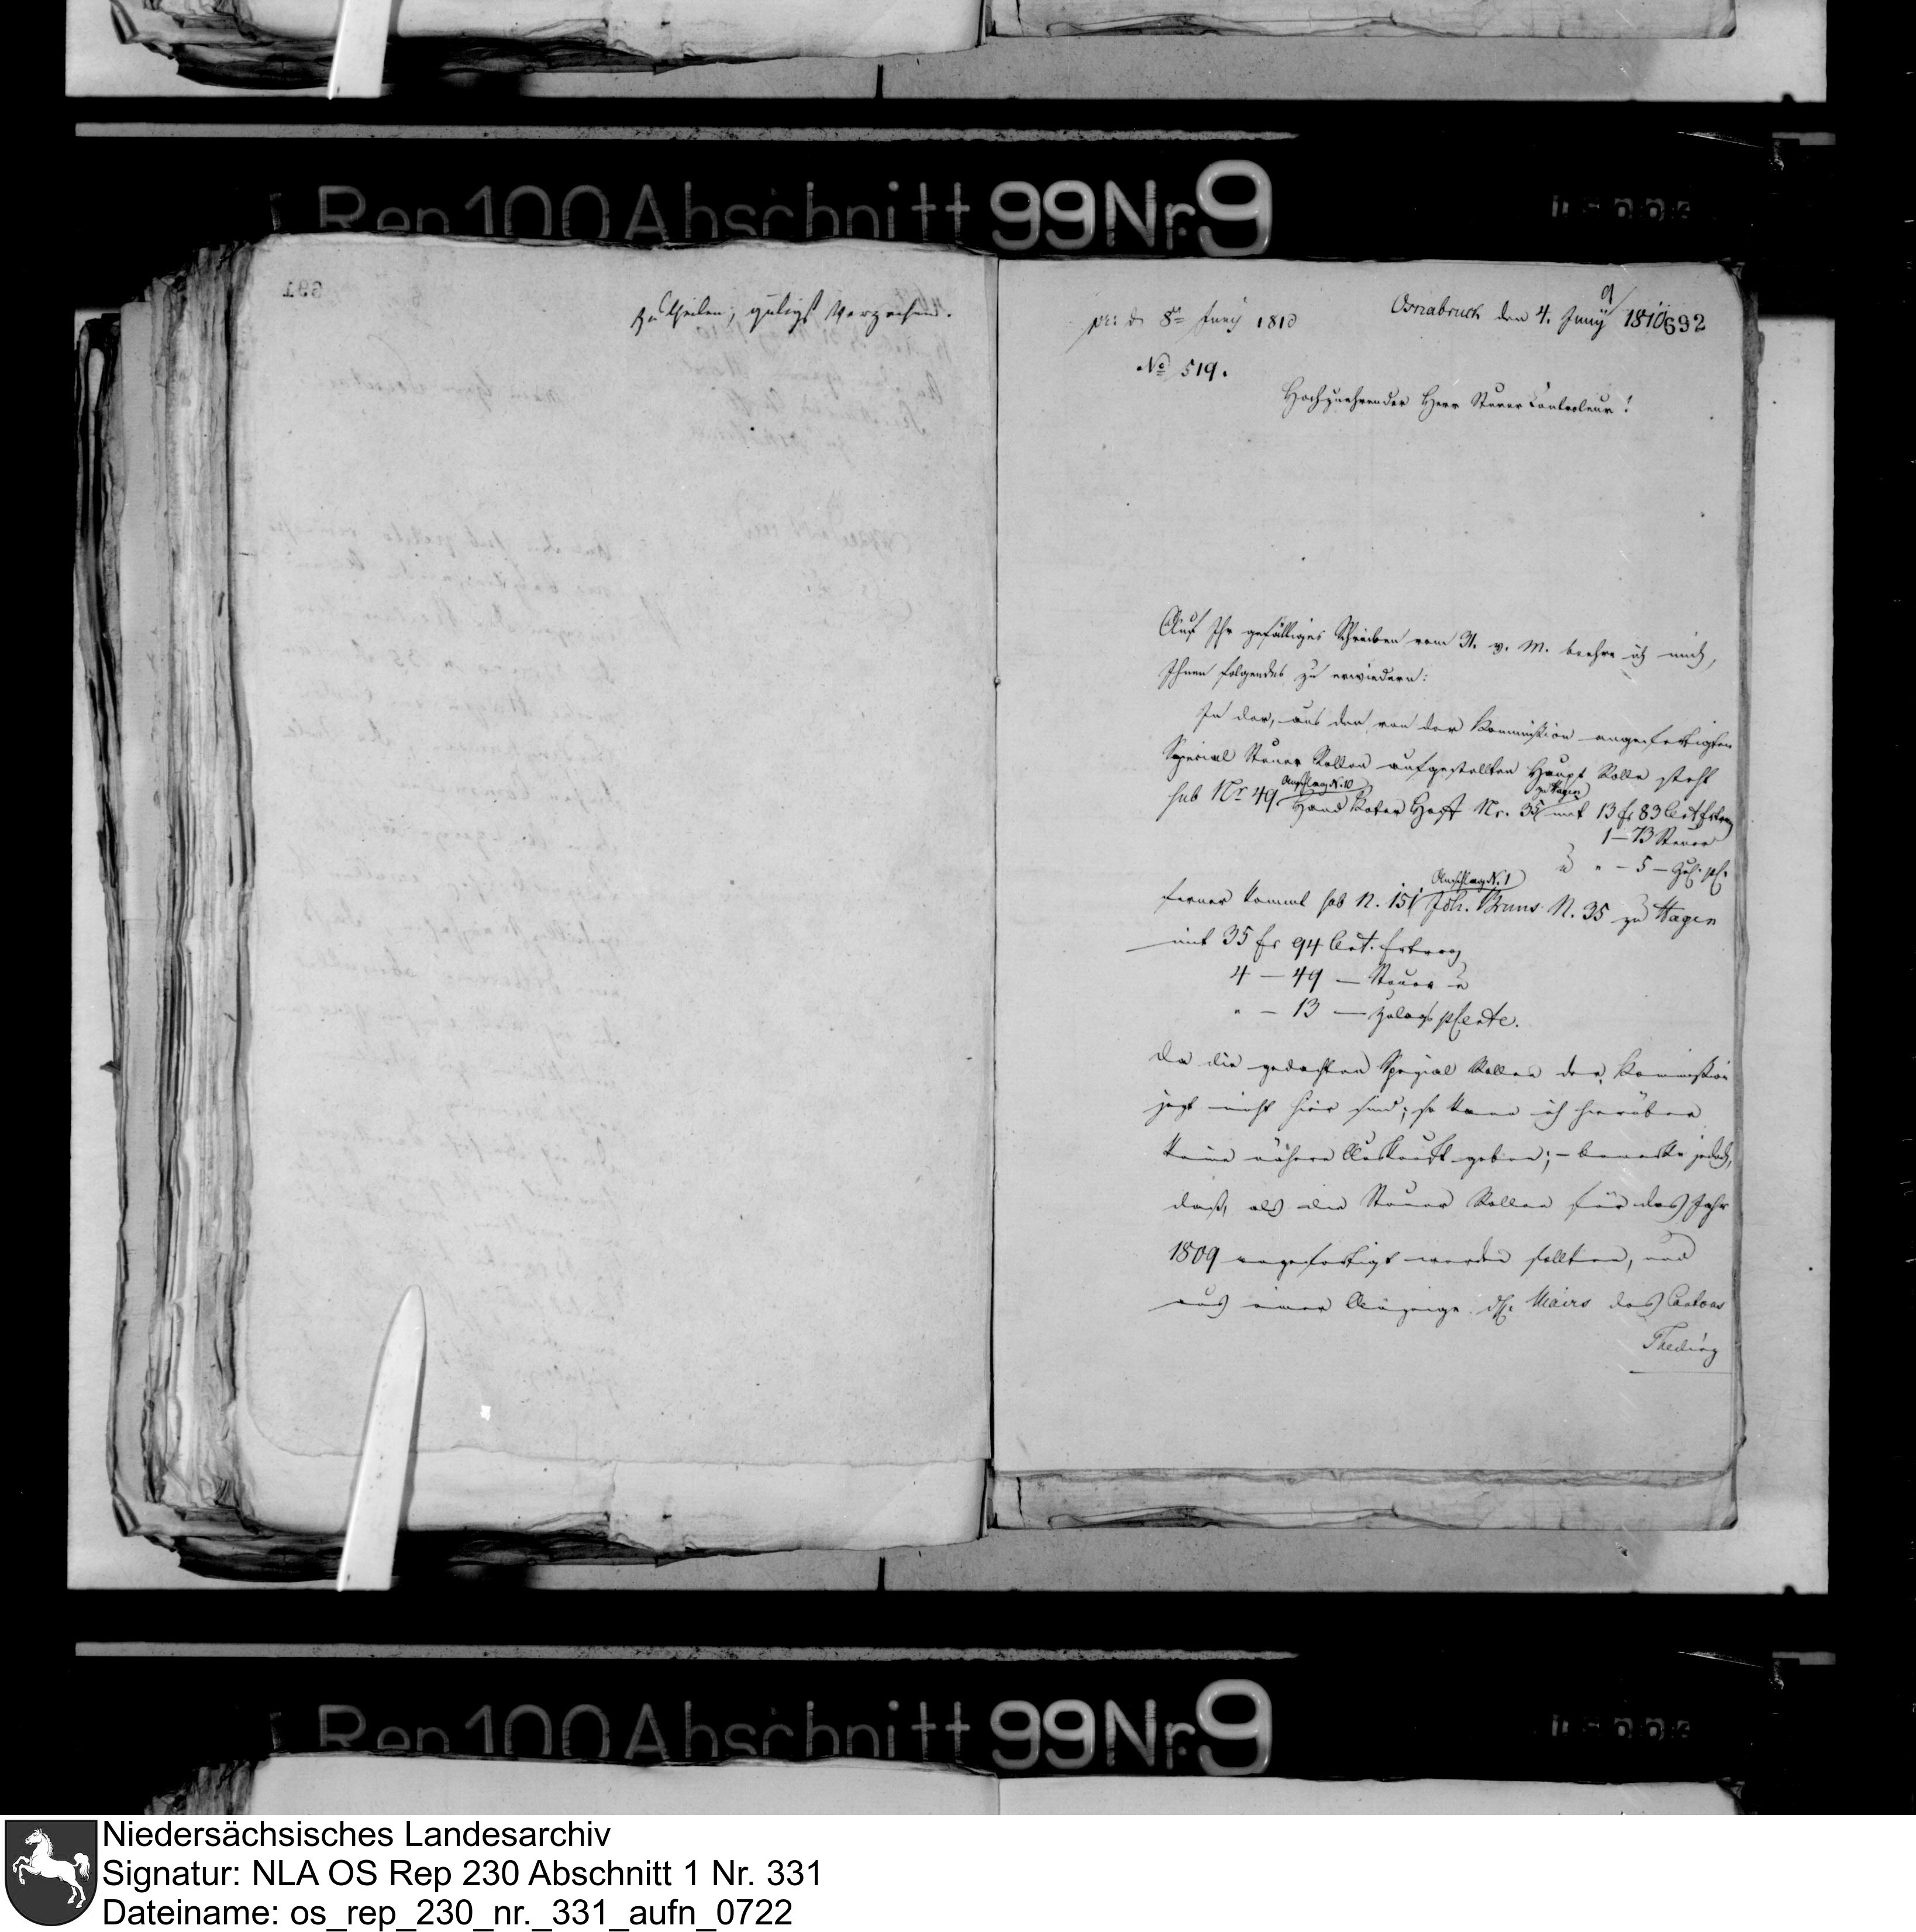 Rep 100 Abschnitt 99 Nr 9
691
zu theilen, gütigst verzeihen.
pr: d 8t Juny 1810
Osnabruck den 4. Juny 1810
692
No 519.
Hochzuehrender Herr Steuer Controleur!
Auf Ihr gefälliges Schreiben vom 31. v. M. beehre ich mich,
Ihnen folgendes zu erwiedern:
In der, aus den von der Kommißion angefertigten
Special Steuer Rollen aufgestellten Haupt Rolle steht
Anschlag N. 10
zu Hagen
sub Nr 49 Hand Koter Hoff Nr. 35 mit 13 fr 83 Cent Ertrag
1 – 73 Steuer
u " – 5 –
Anschlag N. 1
ferner kommt sub N. 151 Joh. Bruns N. 35 zu Hagen
mit 35 fr 94 Cent. Ertrag
4 – 49 – Steuer u
" – 13 – Zulags
Da die gedachten Spezial Rollen der Kommißion
jezt nicht hier sind; so kann ich hierüber
keine nähere Auskunft geben; – bemerke jedoch,
daß, als die Steuer Rollen für das Jahr
1809 angefertigt werden sollten, und
aus einer Anzeige Mairs des Cantons
Niedersächsisches Landesarchiv
Signatur: NLA OS Rep 230 Abschnitt 1 Nr. 331
Dateiname: os_rep_230_nr._331_aufn_0722
Rep 100 Abschnitt 99 Nr 9